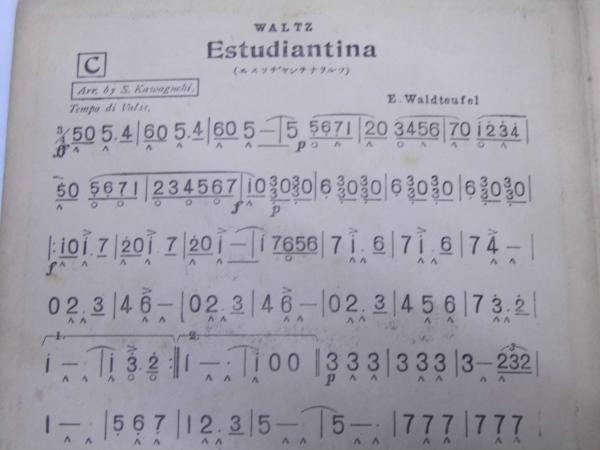 WALTZ
Estudiantina
(エスツヂヤンチナワルツ)
C
Arr. by S. Kawaguchi.
E. Waldteufel
Tempo di Valse.
3/4 50 5. 4 | 60 5. 4 | 60 5 — | 5 5671 | 20 3456 | 70 1234 |
ff p
50 5671 | 234567 | 10 330 330 | 6 330 330 | 6 330 330 | 6 330 330 | 6 330 330 |
f p
|: 10 1. 7 | 20 1. 7 | 20 1 — | 1 7656 | 7 1. 6 | 7 1. 6 | 7 4 — |
f
0 2. 3 | 4 6 — | 0 2. 3 | 4 6 — | 0 2. 3 | 4 5 6 | 7 3. 2 |
1. 2.
1 — · | 1 3. 2 :|| 1 — · | 1 0 0 || 3 3 3 | 3 3 3 | 3 — 232 |
p 3
1 — · | 5 6 7 | 1 2. 3 | 5 — · | 5 — · | 7 7 7 | 7 7 7 |